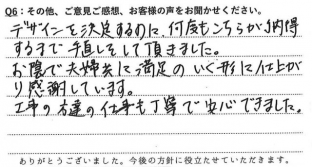 Q6：その他、ご意見ご感想、お客様の声をお聞かせください。
デザインを決定するのに、何度もこちらが納得
するまで手直しをして頂きました。
お陰で夫婦共に満足のいく形に仕上が
り感謝しています。
工事の方達の仕事も丁寧で安心できました。
ありがとうございました。今後の方針に役立たせていただきます。